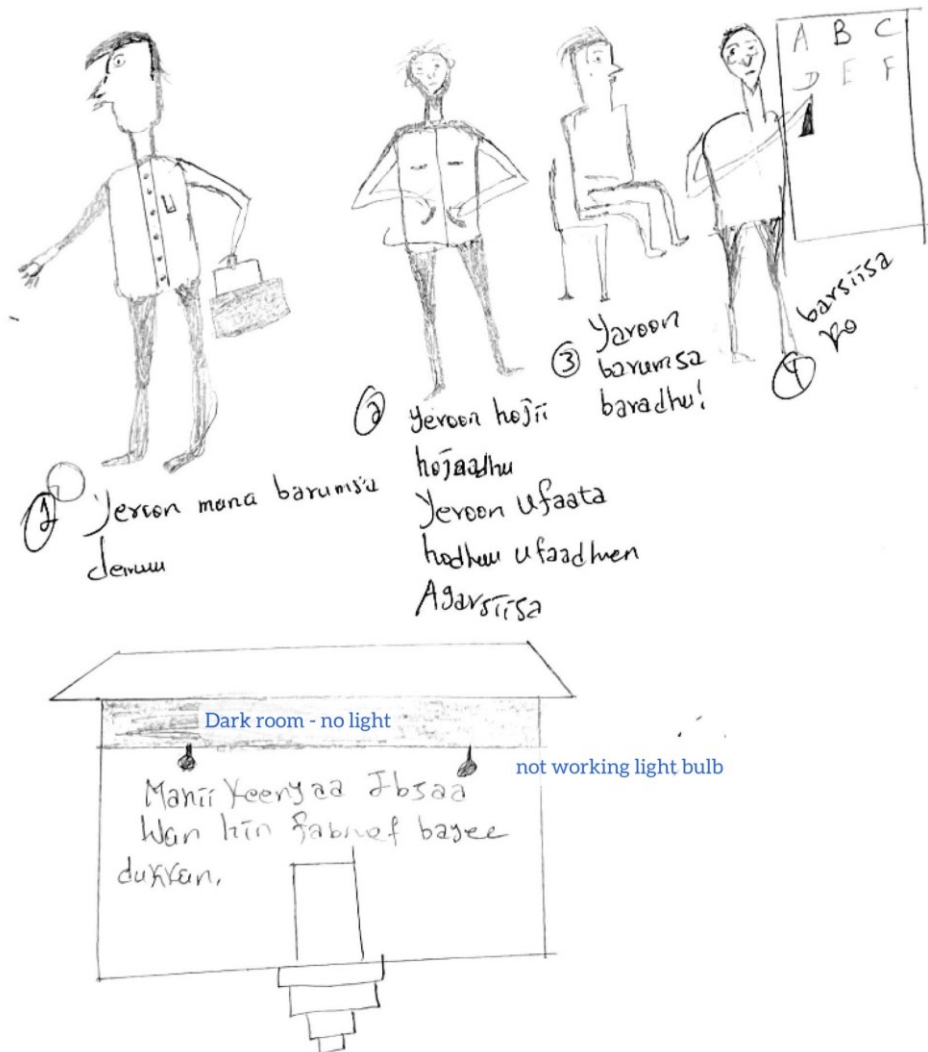 A B C
D E F
1 Yeroon mana barumsa
demuu
2 Yeroon hojii
hojaadhu
Yeroon Ufaata
hodhuu ufaadheen
Agarsiisa
3 Yaroon
barumsa
baradhu!
4 barsiisa
Dark room - no light
not working light bulb
Manii Keenyaa Ibsaa
Wan hin qabneef bayee
dukkan.